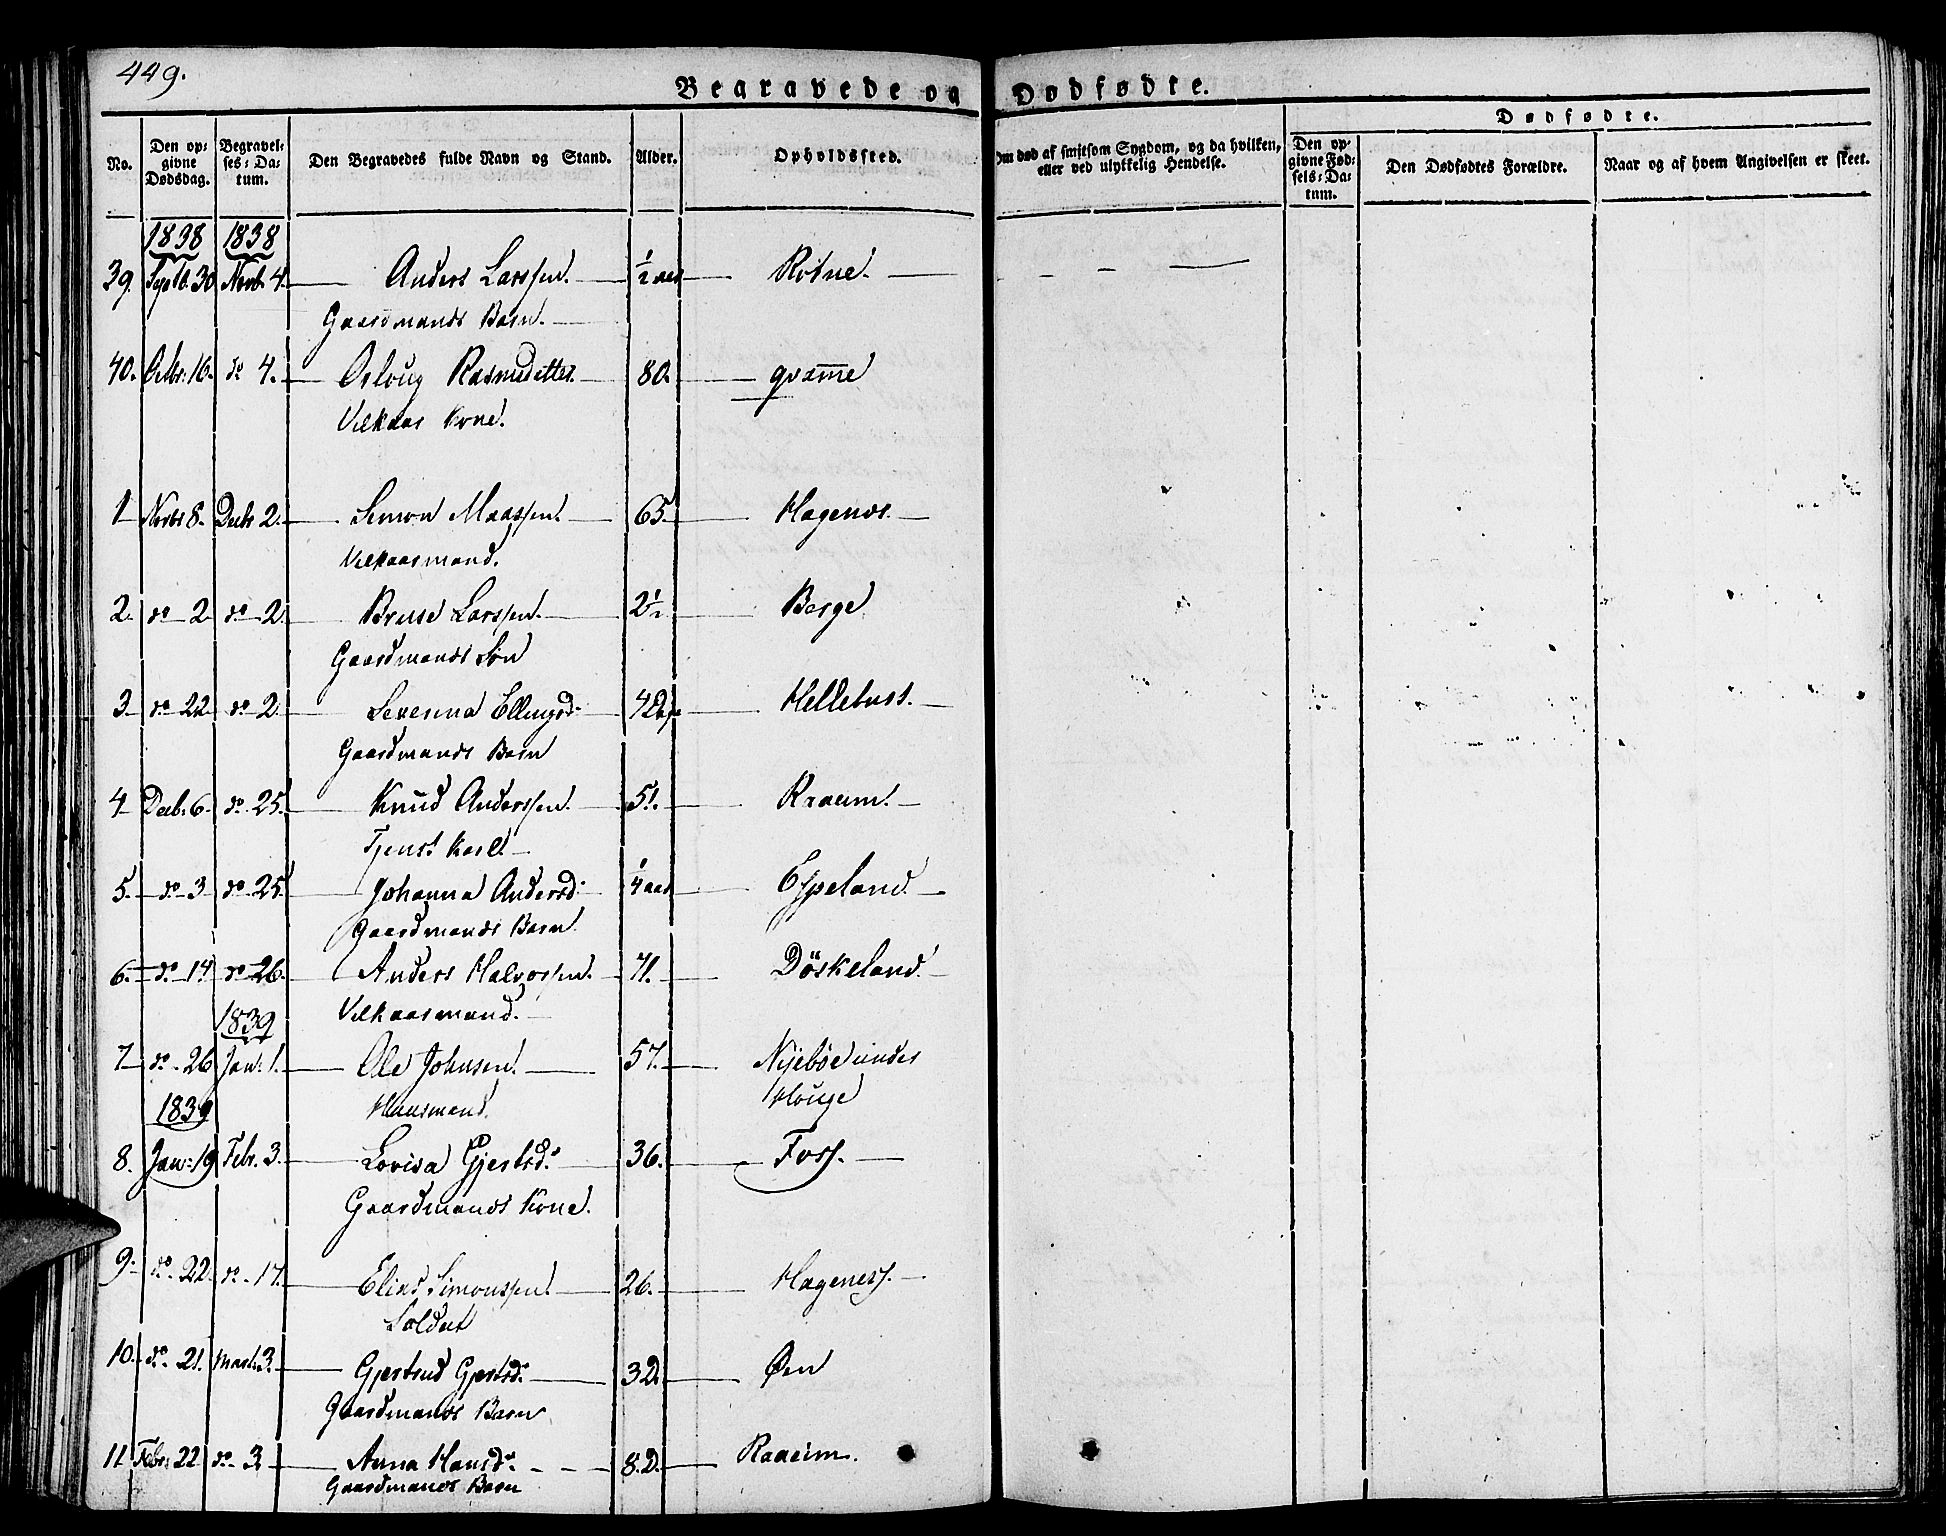 449.
Begravede og Dødfødte.
Dødfødte.
No. Den opgivne Dødsdag. Begravelses-Datum. Den Begravedes fulde Navn og Stand. Alder. Opholdssted. Om død af smitsom Sygdom, og da hvilken, eller ved ulykkelig Hendelse. Den opgivne Fødsels-Datum. Den Dødfødtes Forældre. Naar og af hvem Angivelsen er skeet.
1838 1838
39. Septb. 30 Novb. 4. Anders Larssen. 1/2 aar Rotne.
Gaardmands Barn.
40. Octbr. 16. do 4. Osloug Rasmusdatter 80. qvamme
Vilkaars Kone.
1 Novbr 8. Decbr 2. Simon Maassen. 65. Hagenæs.
Vilkaarsmand.
2. do 2 do 2. Bruse Larssen. 2 1/2 Berge
Gaardmands Søn
3 do 22 do 2 Severina Ellingsd. 4 Dage Helletuss.
Gaardmands Barn
4 Decb. 6. do 25. Knud Anderssen. 51. Kraeim.
Tjenst Karl.
5. do 3 do 25. Johanna Andersd. 1/4 aar Espeland.
Gaardmands Barn.
6. do 14 do 26. Anders Halvorssen. 71. Döskeland.
Vilkaarsmand.
1839
7 do 26 Jan: 1. Ole Johnsen. 57. Nyebøe under
1839 Huusmand. Houge
8. Jan: 19 Febr. 3. Lovisa Gjertsd. 36. Foss.
Gaardmands Kone.
9. do 22. do 17. Elias Simonssen. 26. Hageness.
Soldat
10. do 21. Marts 3. Gjertrud Gjertsd. 3 D. Øen
Gaardmands Barn
11 Febr. 22 do 3 Anna Hansd. 8. D. Raaeim.
Gaardmands Barn